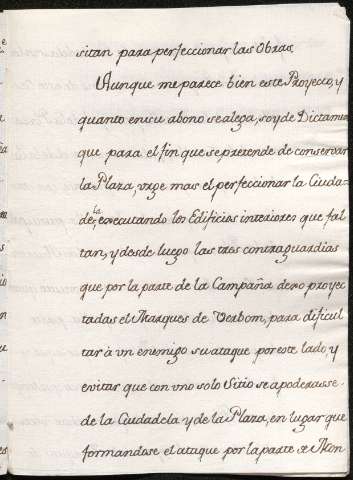 sitan para perfeccionar las Obras.
Aunque me parece bien este Proyecto, y
quanto en su abono se alega, soy de Dictamen
que para el fin que se pretende de conservar
la Plaza, urge mas el perfeccionar la Ciuda=
dela, executando los Edificios interiores que fal=
tan, y desde luego las tres contraguardias
que por la parte de la Campaña dexo proyec=
tadas el Marques de Verbom, para dificul
tar à un enemigo su ataque por este lado, y
evitar que con uno solo Sitio se apoderasse
de la Ciudadela y de la Plaza, en lugar que
formandose el ataque por la parte de Mon